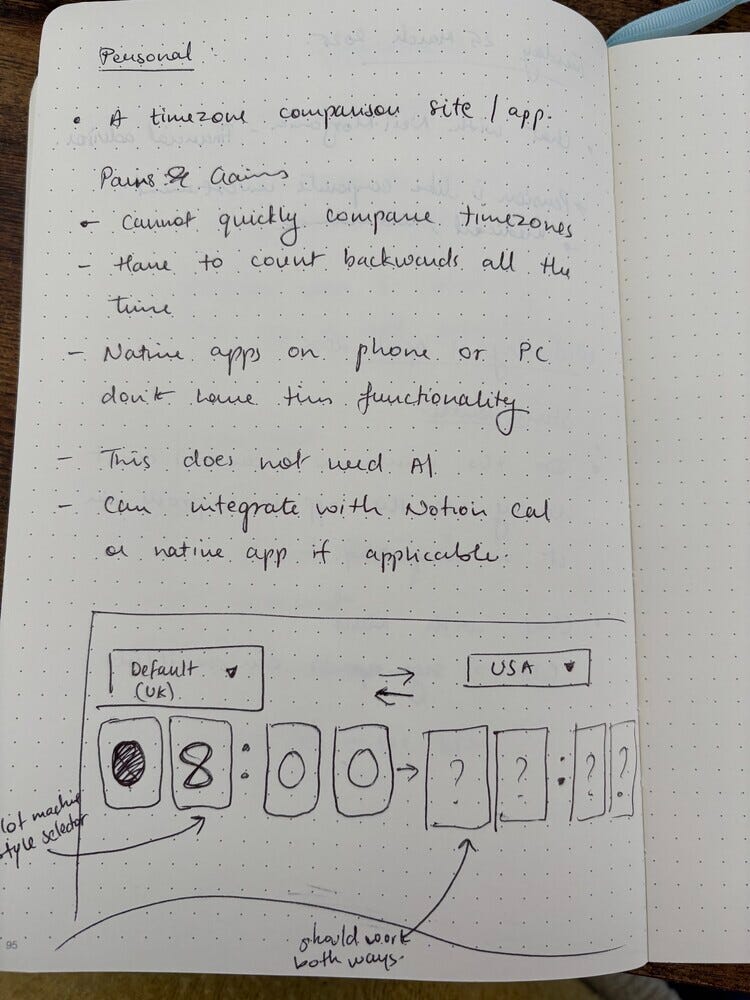 Personal
• A timezone comparison site / app.
Pains & Gains
- Cannot quickly compare timezones
- Have to count backwards all the
time
- Native apps on phone or PC
don't have this functionality.
- This does not need AI
- Can integrate with Notion Cal
or native app if applicable.
Default
(UK)
USA
0 8 : 0 0 → ? ? : ? ?
lot machine
style selector
should work
both ways.
95